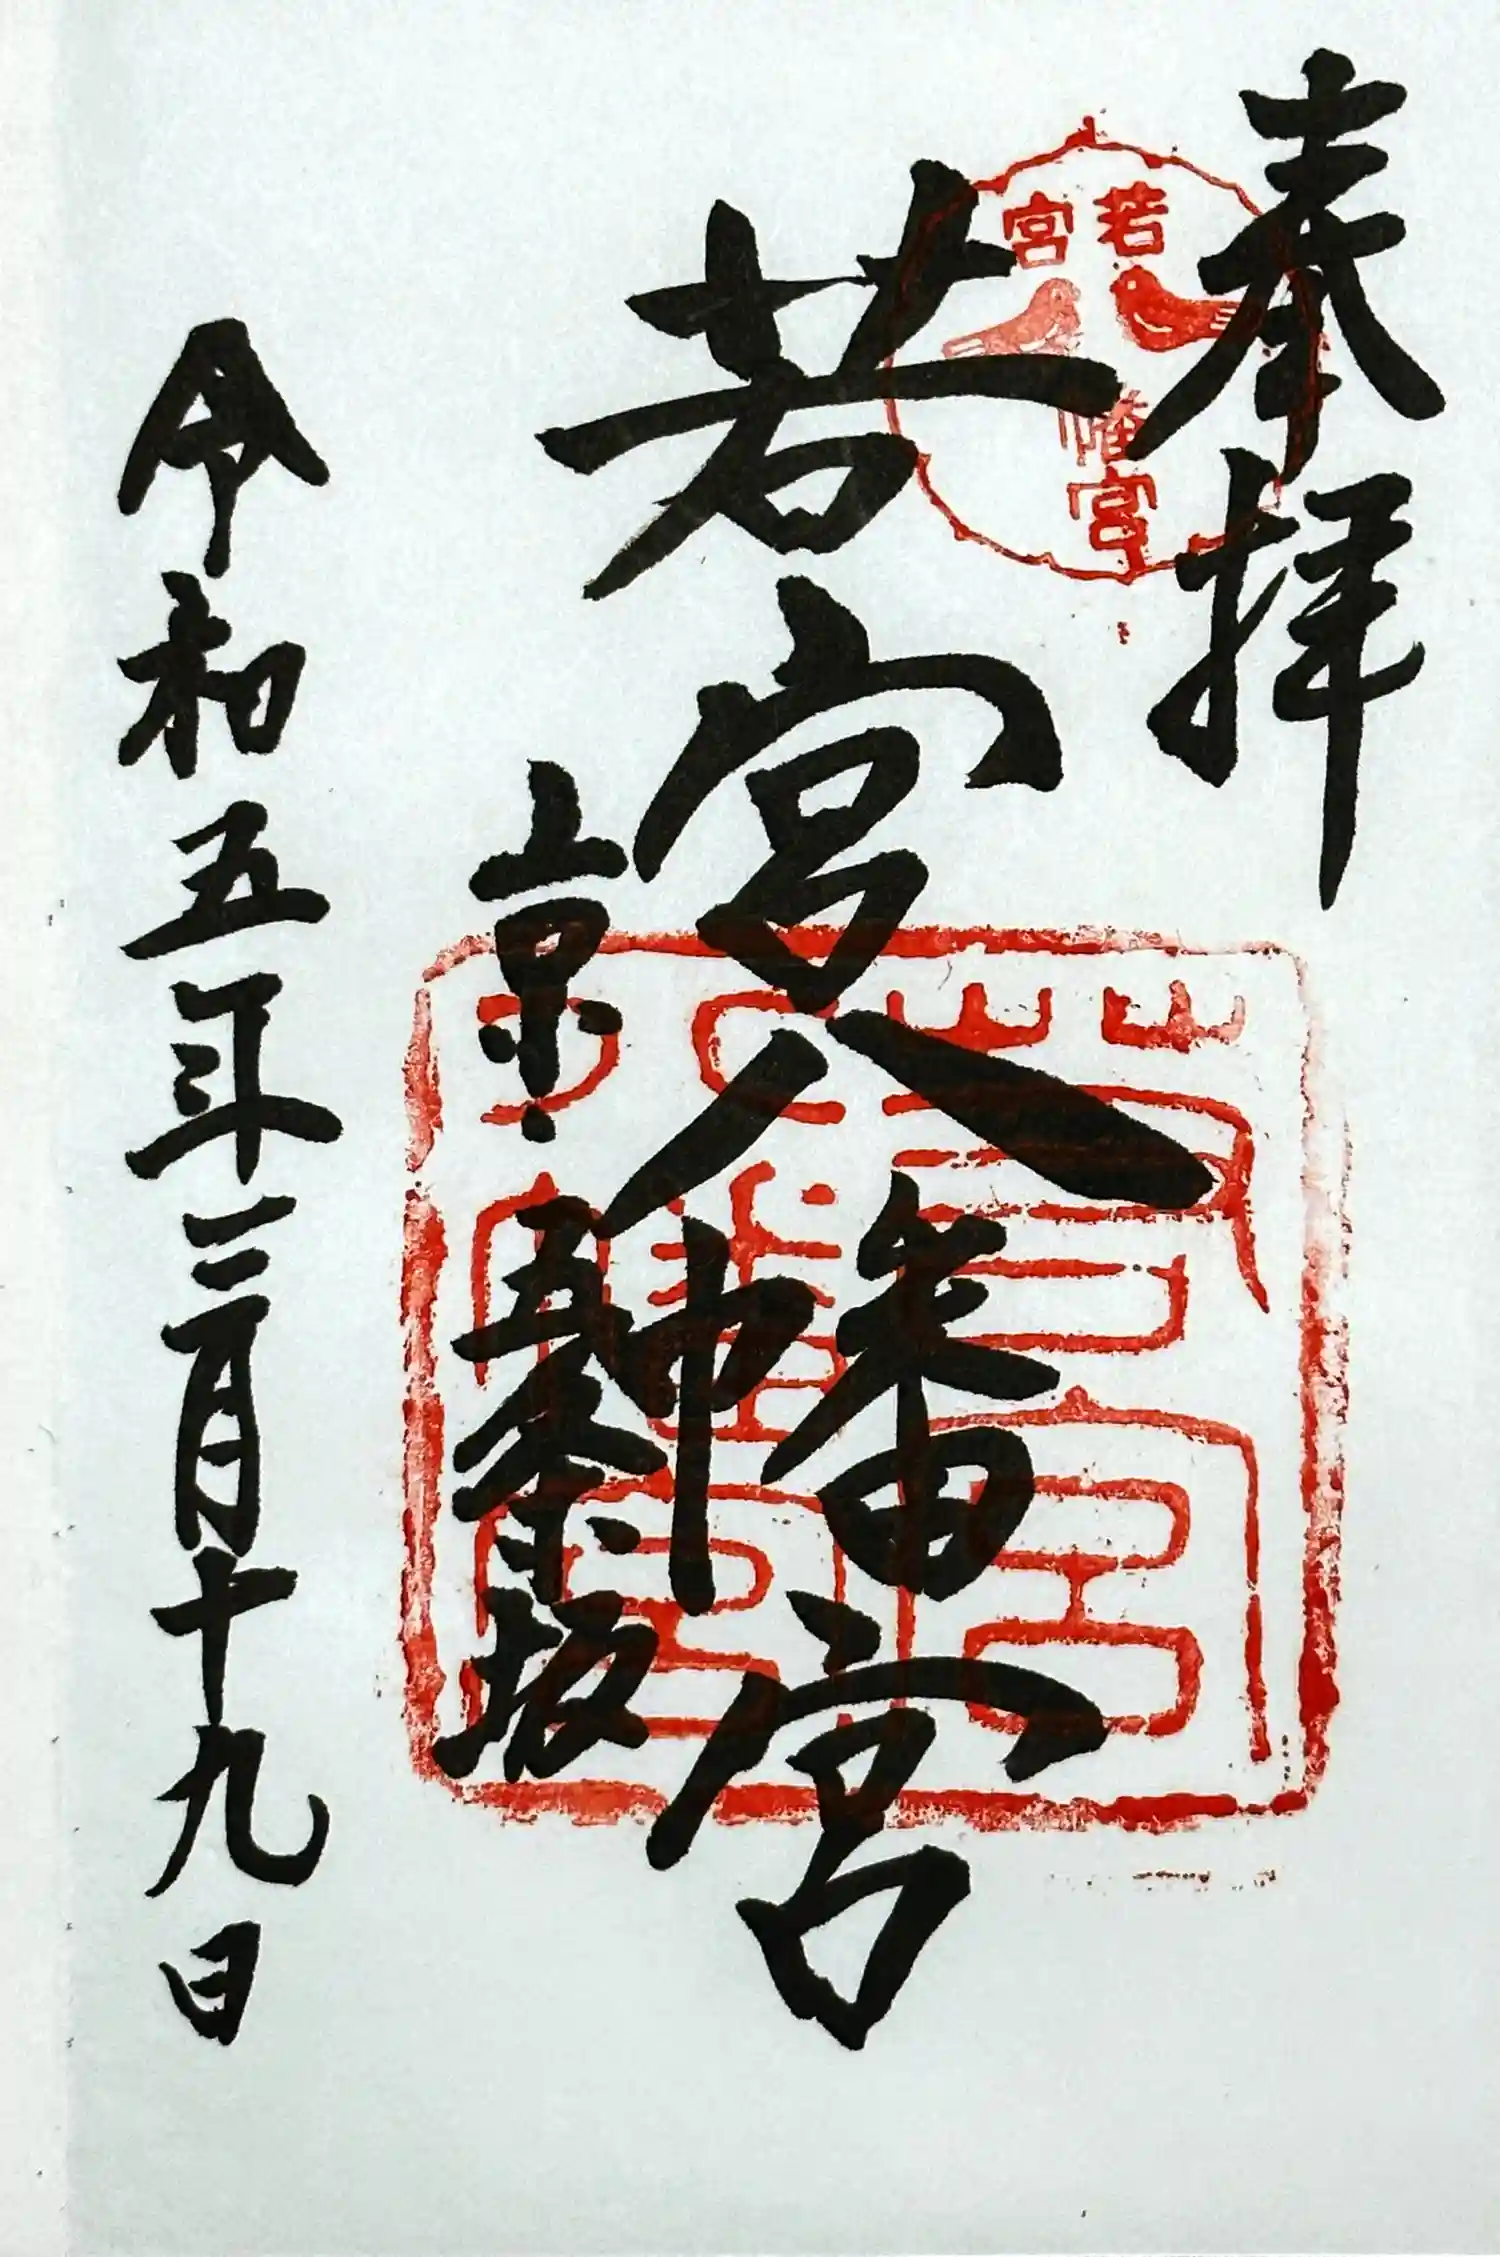 奉拝
若宮八幡宮
京・五条坂
令和五年三月十九日
若宮
幡宮
若宮
八幡宮